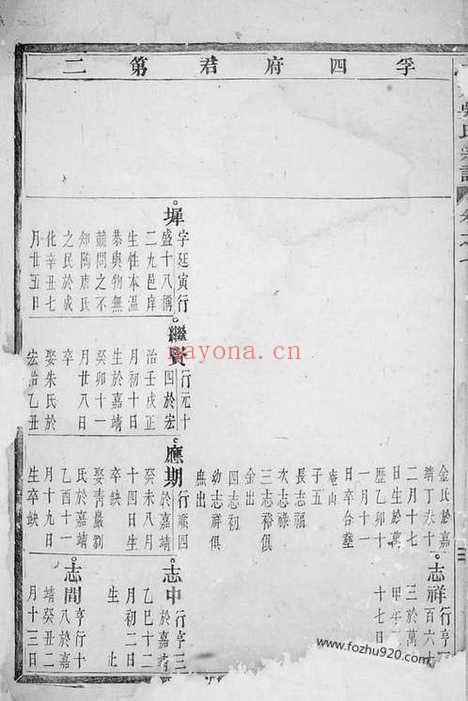 孚四府君第二
墀
字廷寅行
盛十八稱
二九邑庠
生性本温
恭與物無
競問之不
知隋唐氏
之民於成
化辛丑七
月廿五日
繼賢
行元十
四於宏
治壬戌正
月初十日
生於嘉靖
癸卯十一
月廿八日
卒
娶朱氏於
宏治乙丑
金氏於嘉
靖丁亥十
二月十七
日生於萬
歷乙卯十
一月十一
日卒合塟
庵山
子五
長志福
次志祿
三志裕俱
金出
四志初
幼志祥俱
庶出
應期
行順四
於嘉靖
癸未八月
十四日生
卒缺
娶青巖劉
氏於嘉靖
乙酉十一
月十九日
生卒缺
志祥
行亨
百六十
三於萬
甲午
十七日
志中
行亨三
於嘉靖
乙巳十二
月初二日
生 止
志間
亨行十
八於嘉
靖癸丑二
月十三日
nayona.cn
www.fozhu920.com